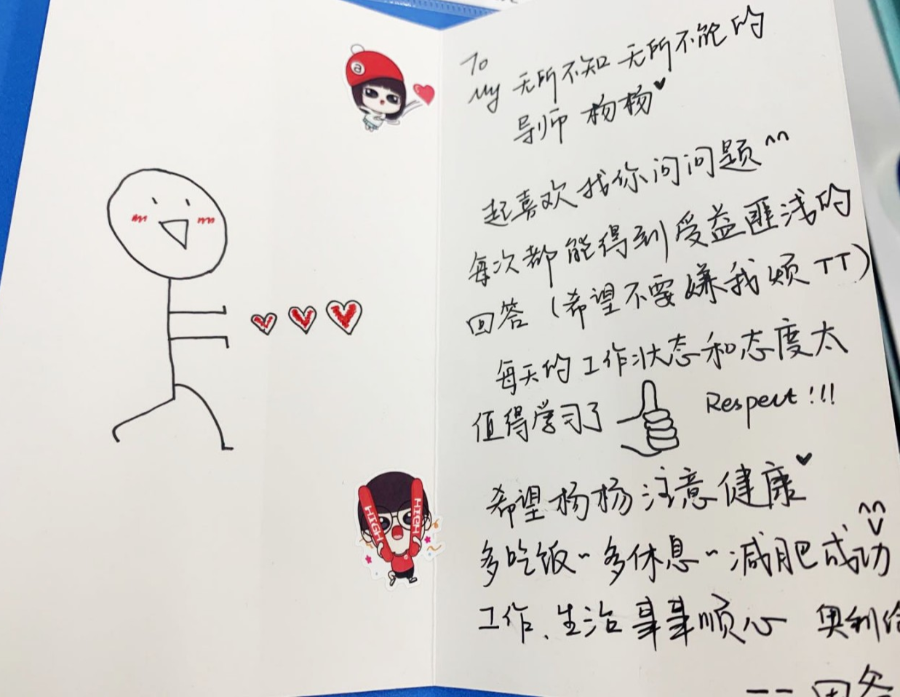 To
My 无所不知 无所不能的
导师 杨杨♥
超喜欢找你问问题^^
每次都能得到受益匪浅的
回答（希望不要嫌我烦TT）
每天的工作状态和态度太
值得学习了 Respect!!!
希望杨杨注意健康♥
多吃饭~多休息~减肥成功^^
工作、生活事事顺心 奥利给
HIGH HIGH